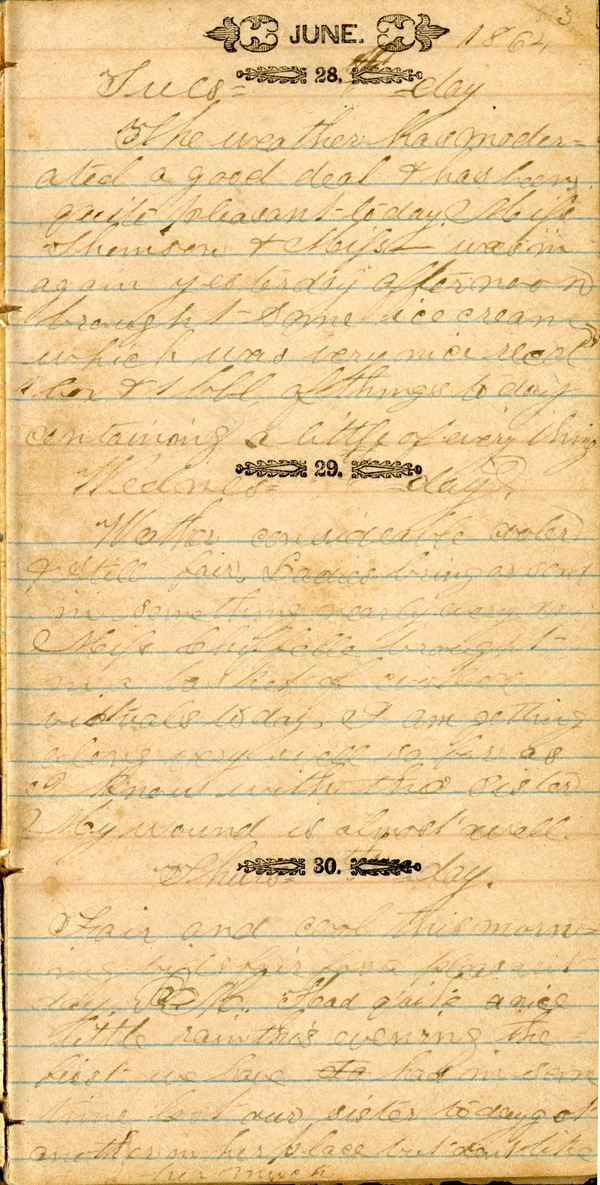 JUNE. 1864
3
28.
Tues= day
The weather has moder=
ated a good deal & has been
quite pleasant to day Miss
Thomson & Miss was in
again yesterday afternoon
brought some ice cream
which was very nice recd
1 box & 1 bbl of things to day
containing a little of every thing
29.
Wednes= day
Wether considerable cooler
& still fair, Ladies bring or send
in something nearly every
Miss brought
in a basket of cooked
victuals to day, I am getting
along very well so far as
I know with this sister
My wound is almost well.
30.
Thurs= day.
Fair and cool this morn=
ing
day. P M. Had quite a nice
little rain this evening the
first we have had in some
time lost our sister to day got
another in her place but dont like
her much